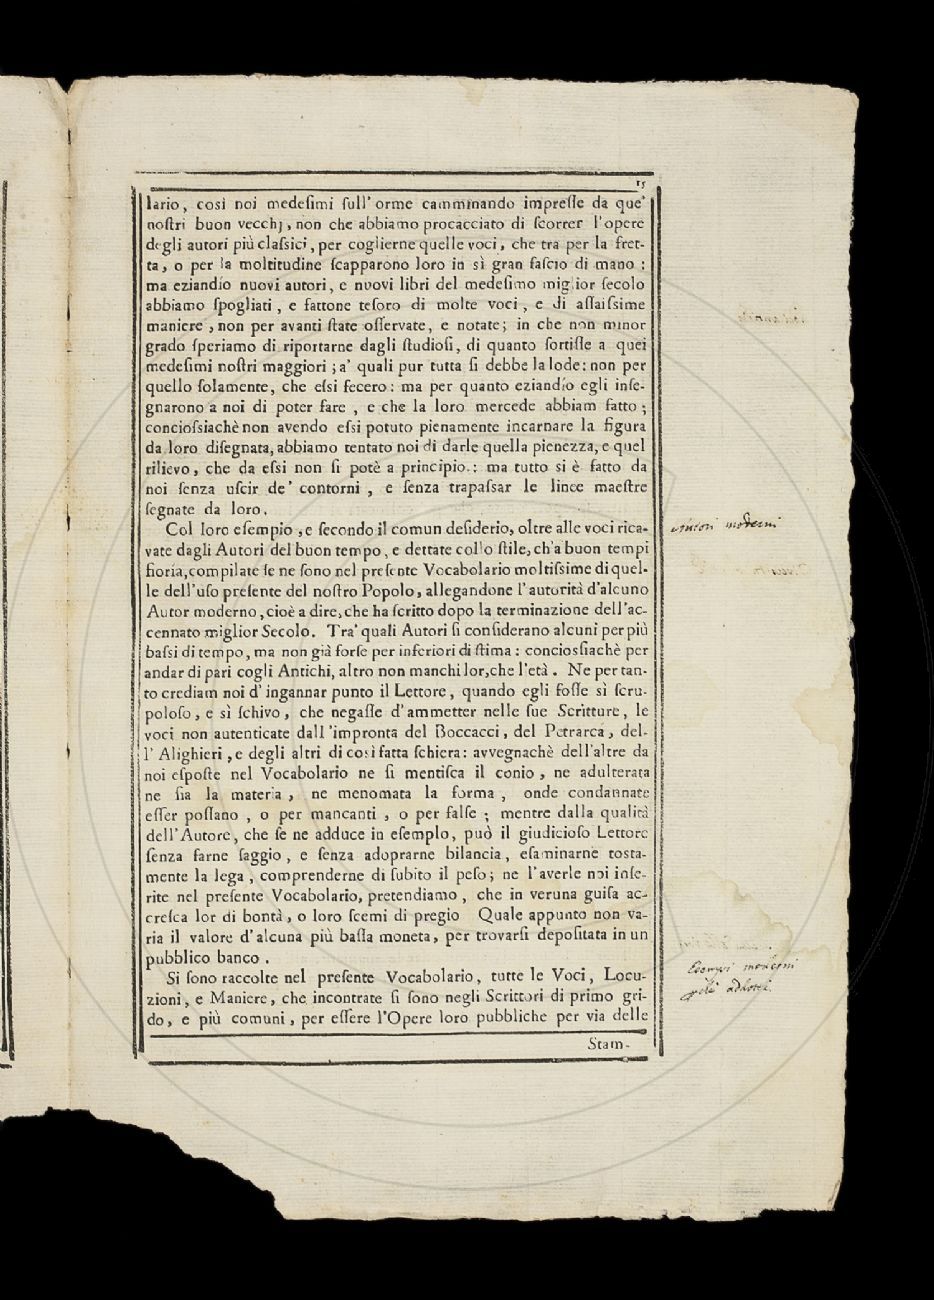 15
lario, così noi medeſimi ſull'orme camminando impreſſe da que'
noſtri buon vecchj, non che abbiamo procacciato di ſcorrer l'opere
degli autori più claſsici, per coglierne quelle voci, che tra per la fret-
ta, o per la moltitudine ſcapparono loro in sì gran faſcio di mano:
ma eziandío nuovi autori, e nuovi libri del medeſimo miglior ſecolo
abbiamo ſpogliati, e fattone teſoro di molte voci, e di aſſaiſsime
maniere, non per avanti ſtate oſſervate, e notate; in che non minor
grado ſperiamo di riportarne dagli ſtudioſi, di quanto ſortiſſe a quei
medeſimi noſtri maggiori; a' quali pur tutta ſi debbe la lode: non per
quello ſolamente, che eſsi fecero: ma per quanto eziandío egli inſe-
gnarono a noi di poter fare, e che la loro mercede abbiam fatto;
concioſsiachè non avendo eſsi potuto pienamente incarnare la figura
da loro diſegnata, abbiamo tentato noi di darle quella pienezza, e quel
rilievo, che da eſsi non ſi potè a principio.: ma tutto si è fatto da
noi ſenza uſcir de' contorni, e ſenza trapaſsar le linee maeſtre
ſegnate da loro.
Col loro eſempio, e ſecondo il comun deſiderio, oltre alle voci rica-
vate dagli Autori del buon tempo, e dettate collo ſtile, ch'a buon tempi
fioría, compilate ſe ne ſono nel preſente Vocabolario moltiſsime di quel-
le dell'uſo preſente del noſtro Popolo, allegandone l'autorità d'alcuno
Autor moderno, cioè a dire, che ha ſcritto dopo la terminazione dell'ac-
cennato miglior Secolo. Tra' quali Autori ſi conſiderano alcuni per più
baſsi di tempo, ma non già forſe per inferiori di ſtima: concioſsiachè per
andar di pari cogli Antichi, altro non manchi lor, che l'età. Ne per tan-
to crediam noi d'ingannar punto il Lettore, quando egli foſſe sì ſcru-
poloſo, e sì ſchivo, che negaſſe d'ammetter nelle ſue Scritture, le
voci non autenticate dall'impronta del Boccacci, del Petrarca, del-
l'Alighieri, e degli altri di così fatta ſchiera: avvegnachè dell'altre da
noi eſpoſte nel Vocabolario ne ſi mentiſca il conio, ne adulterata
ne ſia la materia, ne menomata la forma, onde condannate
eſſer poſſano, o per mancanti, o per falſe; mentre dalla qualità
dell'Autore, che ſe ne adduce in eſempio, può il giudicioſo Lettore
ſenza farne ſaggio, e ſenza adoprarne bilancia, eſaminarne toſta-
mente la lega, comprenderne di ſubito il peſo; ne l'averle noi inſe-
rite nel preſente Vocabolario, pretendiamo, che in veruna guiſa ac-
creſca lor di bontà, o loro ſcemi di pregio Quale appunto non va-
ria il valore d'alcuna più baſſa moneta, per trovarſi depoſitata in un
pubblico banco.
Si ſono raccolte nel preſente Vocabolario, tutte le Voci, Locu-
zioni, e Maniere, che incontrate ſi ſono negli Scrittori di primo gri-
do, e più comuni, per eſſere l'Opere loro pubbliche per via delle
Stam-
Autori moderni
Esempi moderni